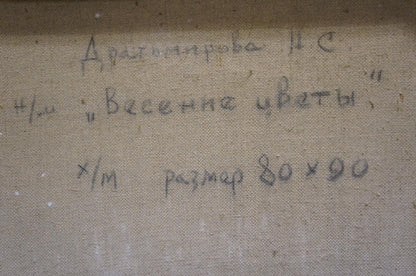 Драгомирова Н С.
н/м „Весенние цветы."
х/м размер 80 х 90